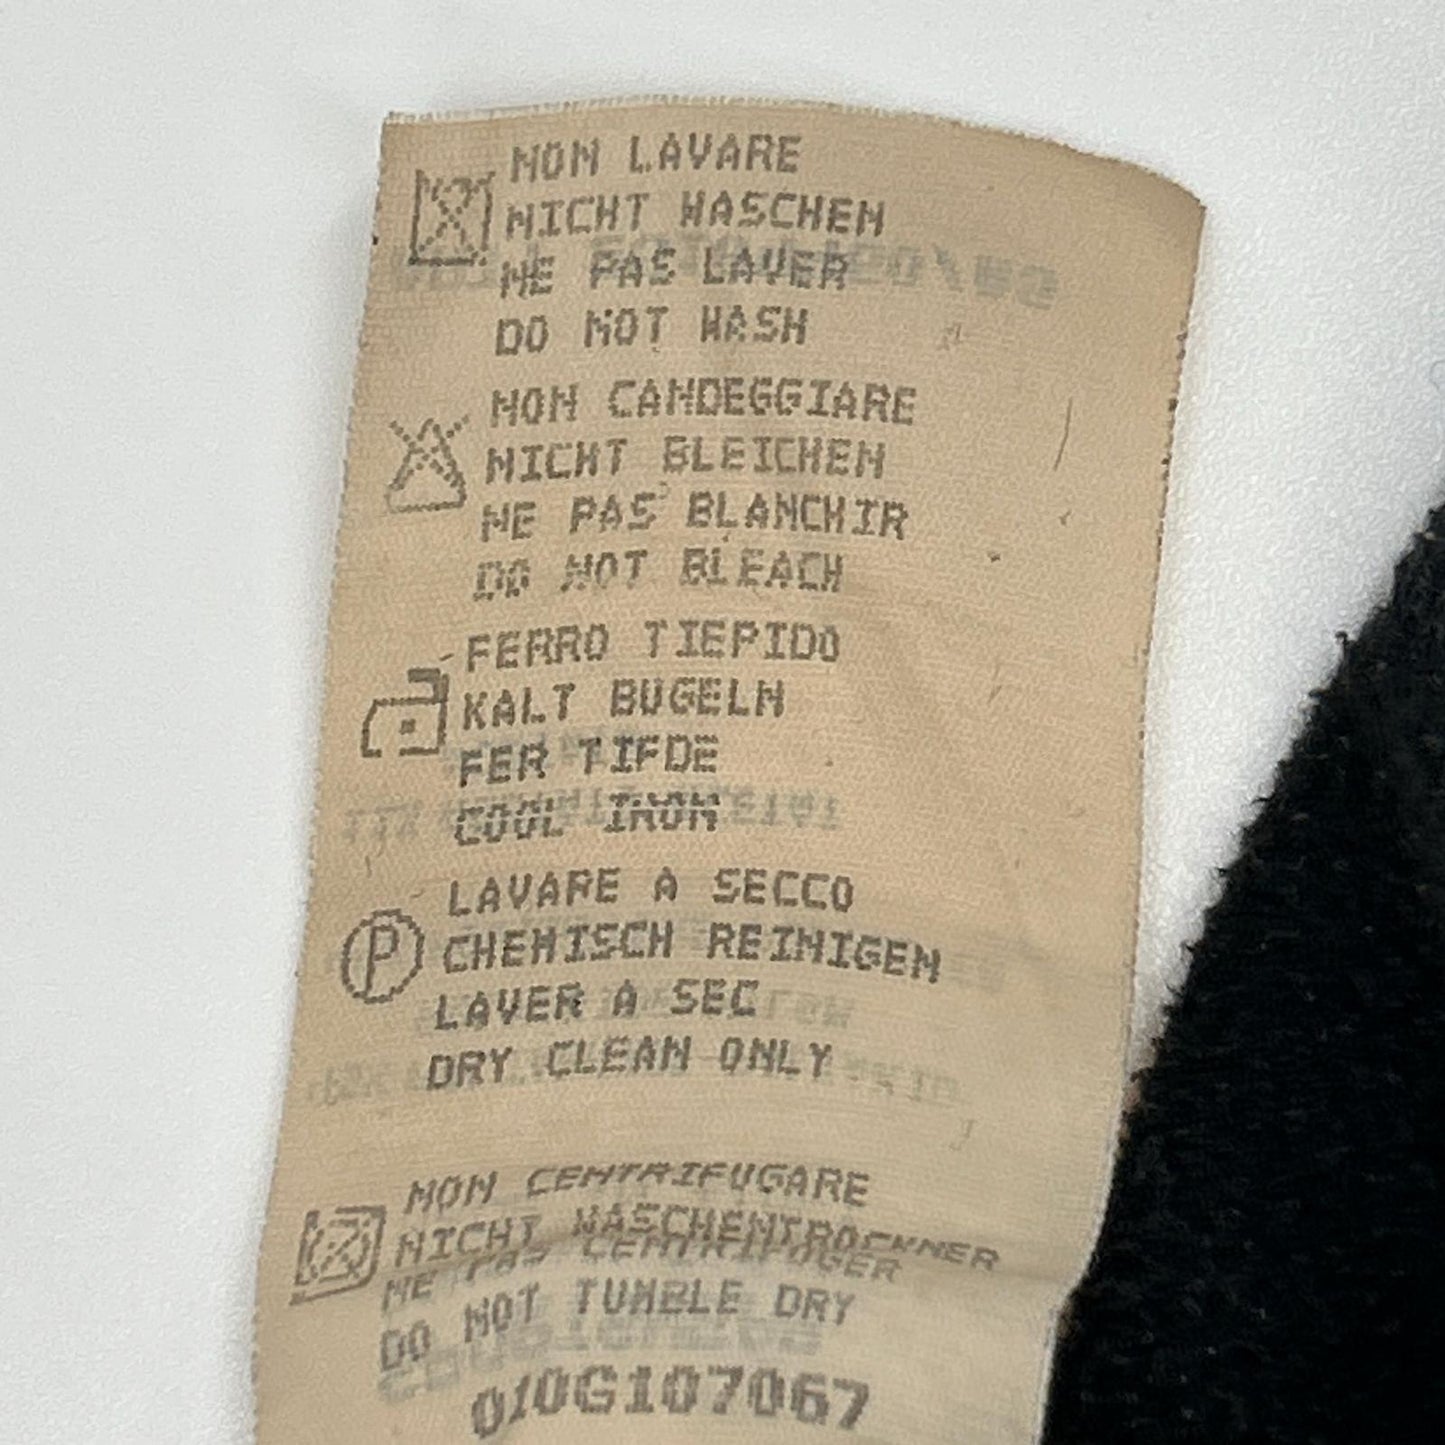 NON LAVARE
NICHT WASCHEN
NE PAS LAVER
DO NOT WASH
NON CANDEGGIARE
NICHT BLEICHEN
NE PAS BLANCHIR
DO NOT BLEACH
FERRO TIEPIDO
KALT BUGELN
FER TIEDE
COOL IRON
P
LAVARE A SECCO
CHEMISCH REINIGEN
LAVER A SEC
DRY CLEAN ONLY
NON CENTRIFUGARE
NICHT WASCHENTROCKNER
NE PAS CENTRIFUGER
DO NOT TUMBLE DRY
010G107067